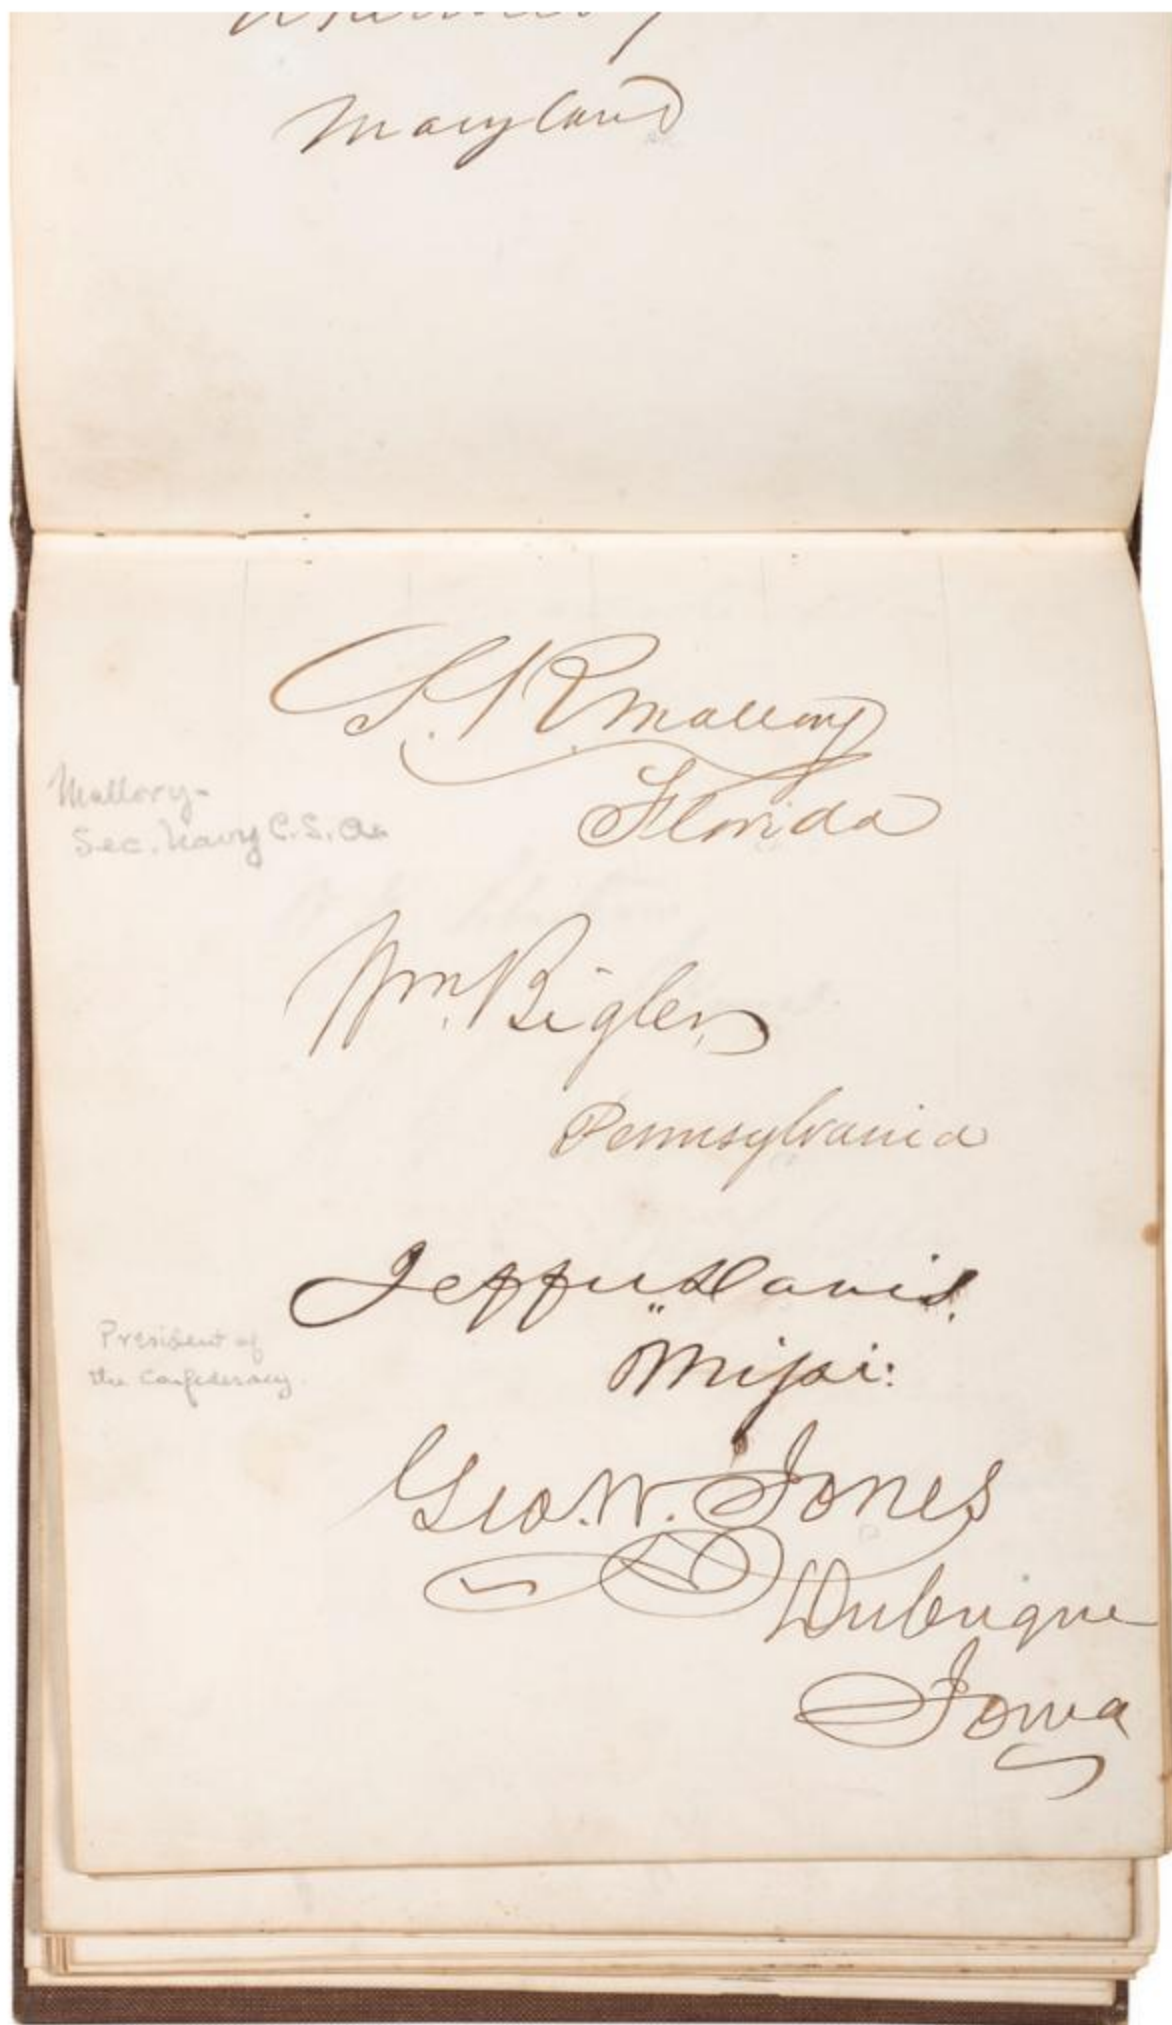 Maryland
S. R. Mallory
Florida
Mallory-
Sec. Navy C.S.A.
Wm. Bigler
Pennsylvania
Jeffn Davis,
" Missi:
President of
the Confederacy.
Geo. W. Jones
Dubuque
Iowa